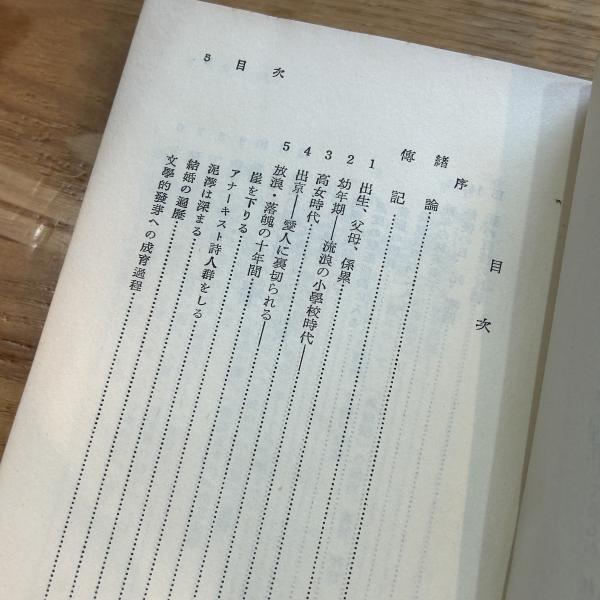 5 目次
目次
序
緒論
傳記
1 出生、父母、係累
2 幼年期――流浪の小學校時代――
3 高女時代
4 出京――愛人に裏切られる――
5 放浪・落魄の十年間
崖を下りる
アナーキスト詩人群をしる
泥濘は深まる
結婚の遍歴
文學的發芽への成育過程